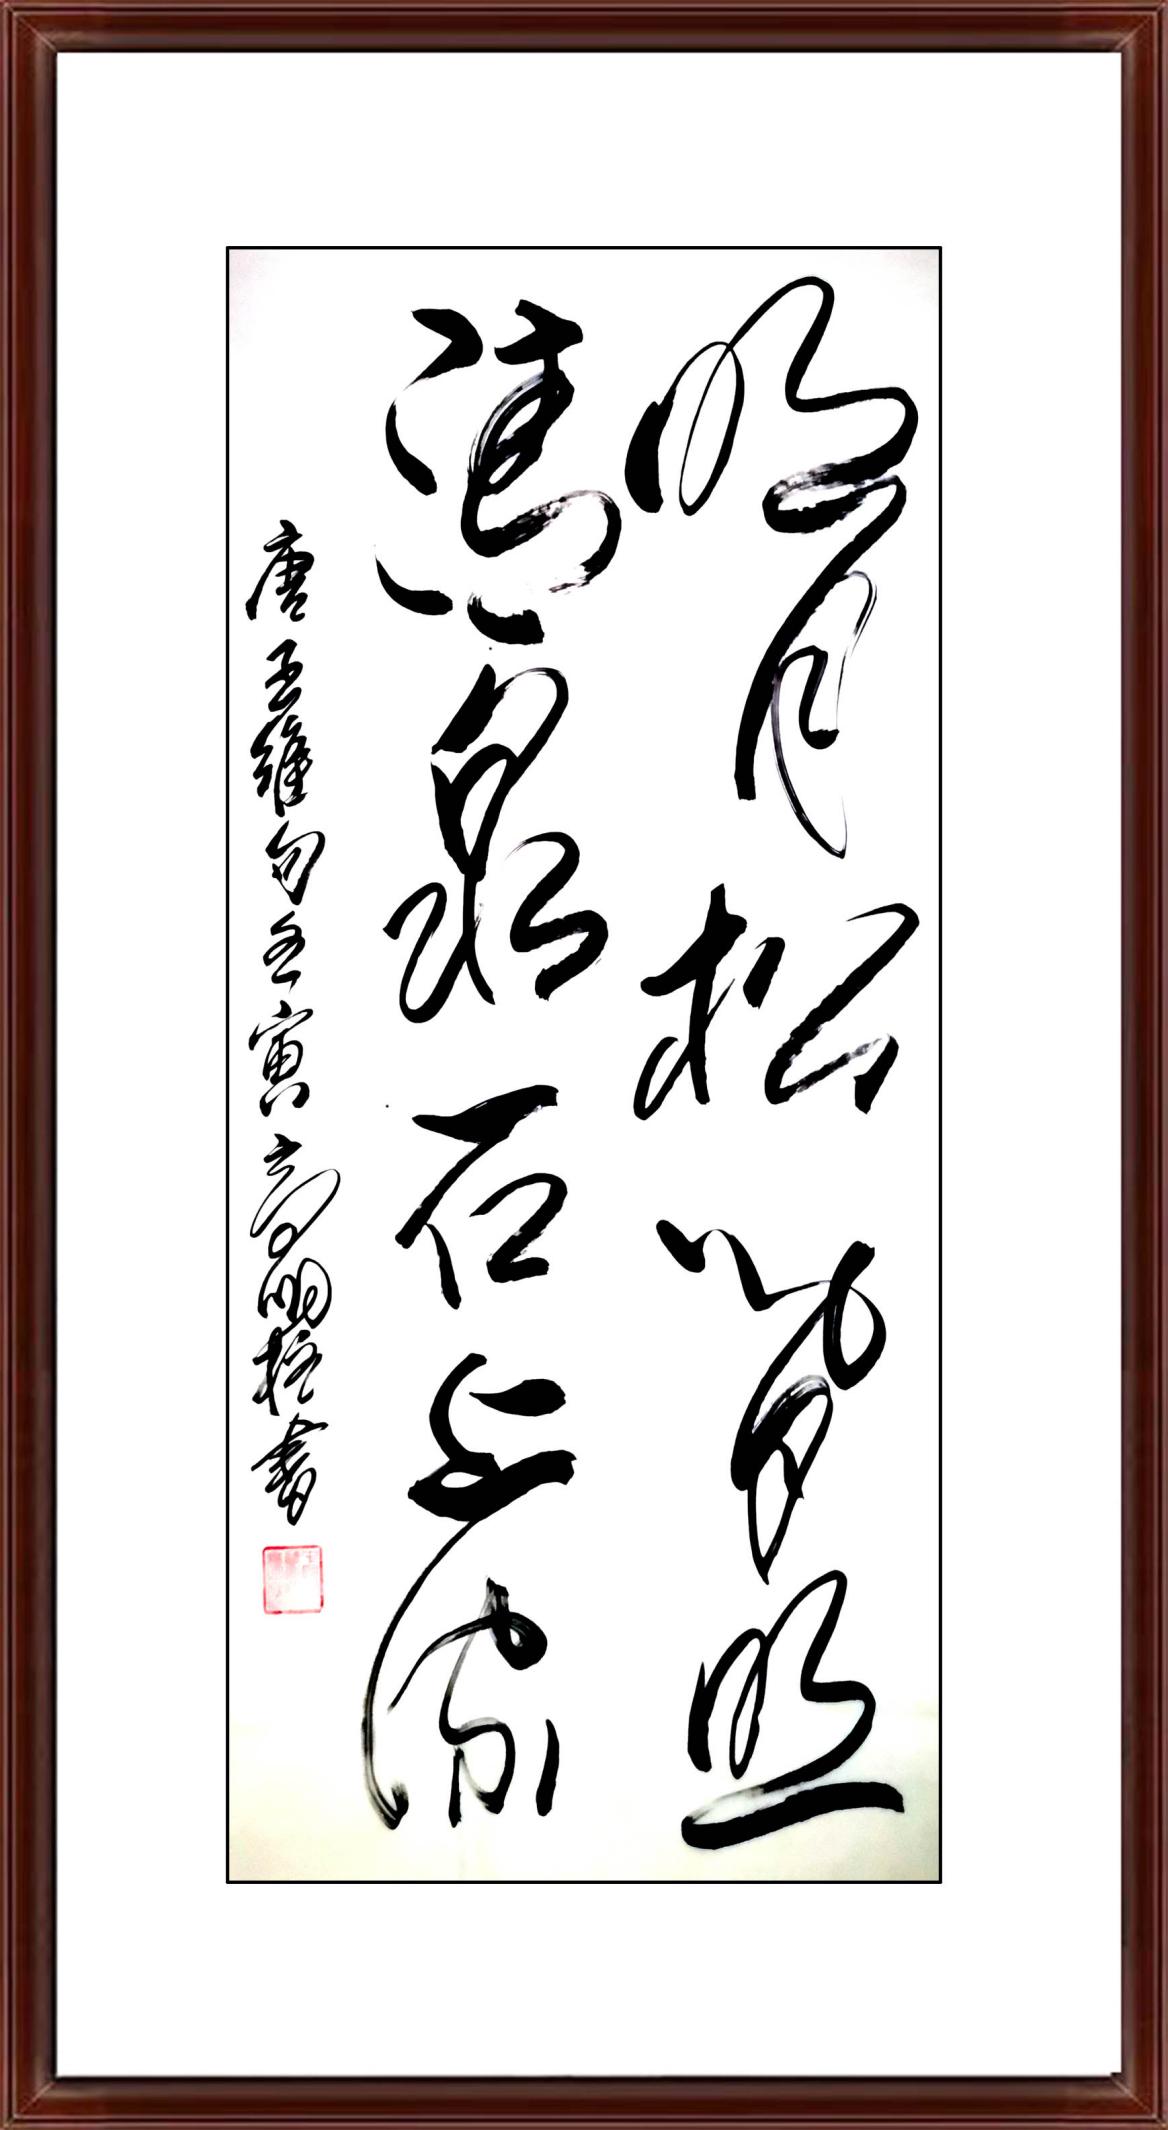 明月松間照
清泉石上流
唐王維句壬寅高明柱書